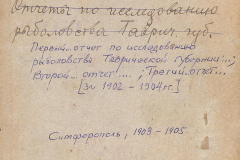 Отчеты по исследованию
рыболовства Таврич. губ.
Первый.. отчет по исследованию
рыболовства Таврической губернии...;
Второй.. отчет....; Третий.. отчет...
[за 1902 - 1904 гг.]
Симферополь, 1903 - 1905